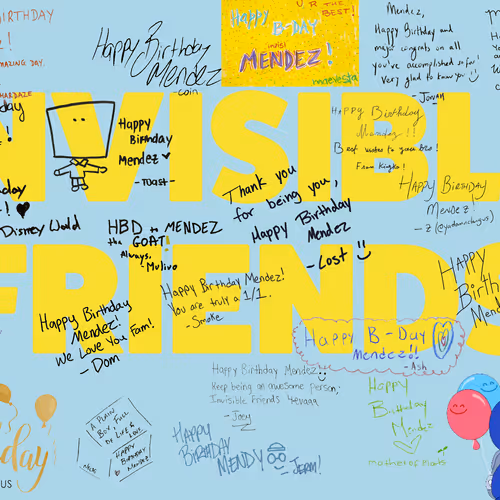 BIRTHDAY
AMAZING DAY.
Happy Birthday
Mendez
-coin
Happy B-DAY
invisi
MENDEZ!
U R THE
BEST!
maevesta
Mendez,
Happy Birthday and
major congrats on all
you've accomplished so far!
Very glad to know you
Jovan
INVISIBL
FRIENDS
Happy
Birthday
Mendez
-TOAST-
Happy Birthday
Mendez !!
Best wishes to you bro!
From Kingko!
HAPPY BIRTHDAY
MENDEZ!
Thank you
for being you,
Happy Birthday
Mendez
-Lost
Disney World
HBD to MENDEZ
the GOAT!
Always,
Mulivo
Happy Birthday Mendez!
You are truly a 1/1.
-Smoke
HAPPY
Birth
Mend
Happy Birthday
Mendez!
We Love You Fam!
-Dom
Happy B-Day
Mendez!!
-Ash
Happy Birthday Mendez
Keep being an awesome person,
Invisible Friends 4evaaa
-Joey
A PLAIN
BOY, FULL
OF LIFE &
LOVE
HAPPY
BIRTHDAY
TO MENDEZ!
NICK
HAPPY
BIRTHDAY
MENDY
-JERM!
Happy
Birthday
Mendez
day
US